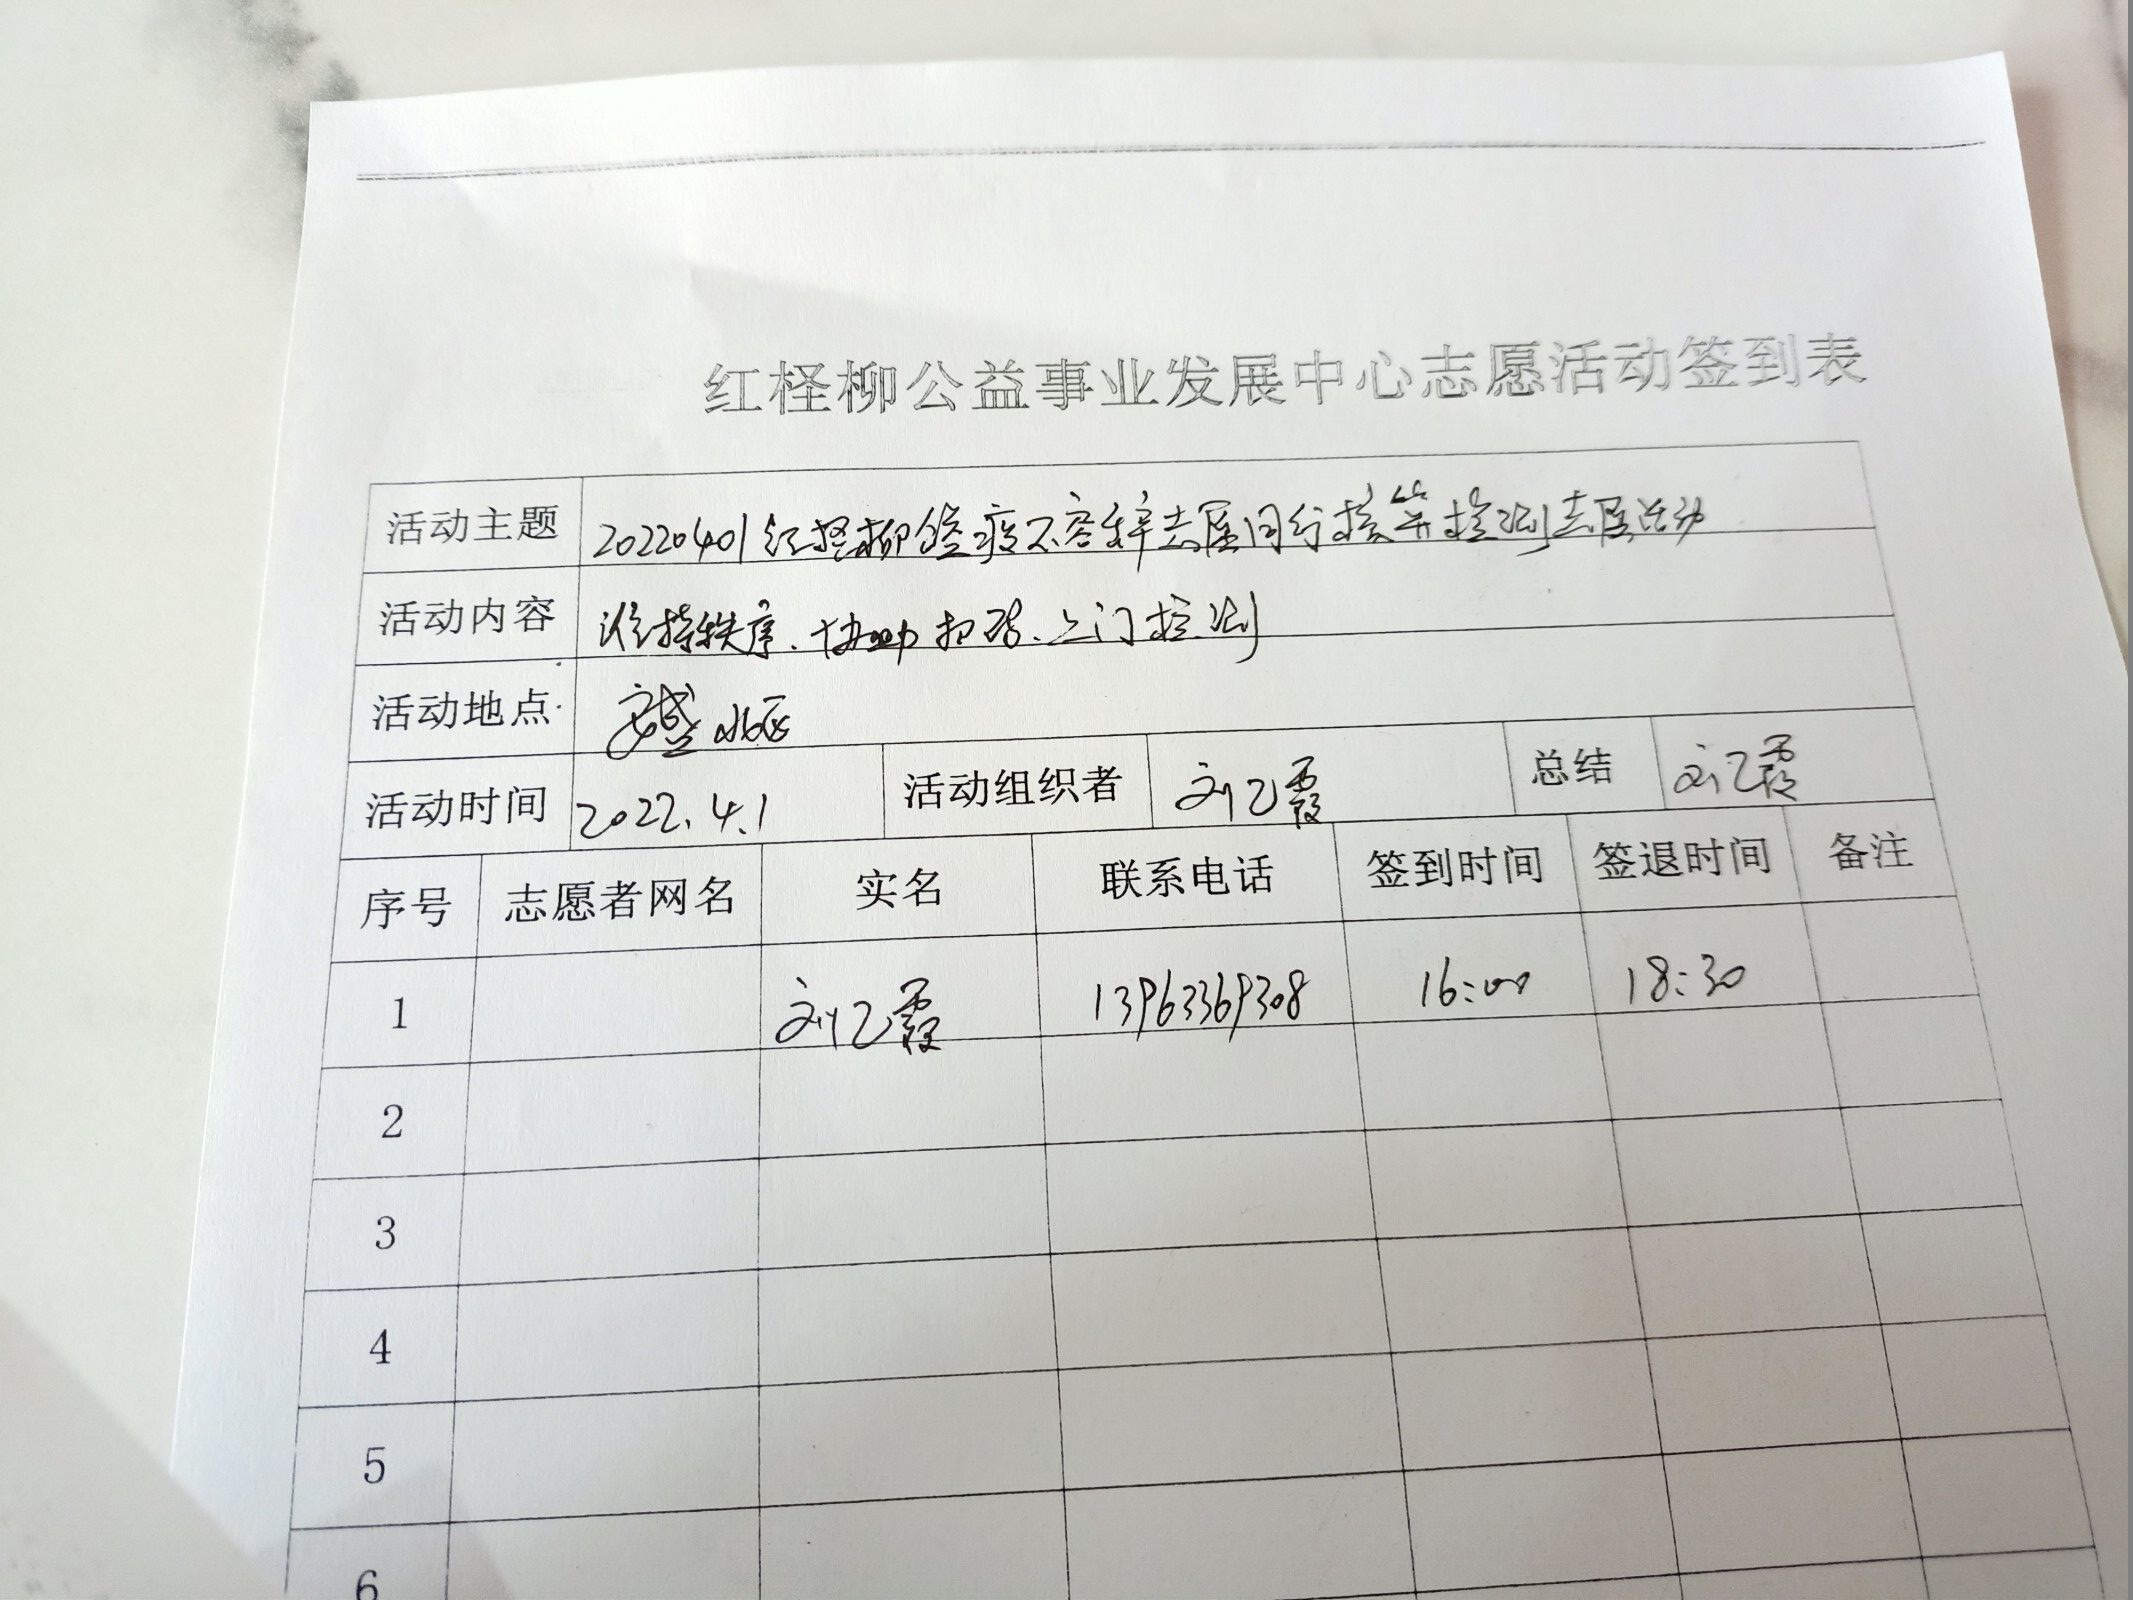 红柽柳公益事业发展中心志愿活动签到表
活动主题 20220401红柽柳鲁疫不容辞志愿同行核算检测志愿活动
活动内容 维持秩序、协助扫码、上门检测
活动地点 安盛小区
活动时间 2022.4.1 活动组织者 刘乙霞 总结 刘乙霞
序号 志愿者网名 实名 联系电话 签到时间 签退时间 备注
1 刘乙霞 13963369308 16:00 18:30
2
3
4
5
6